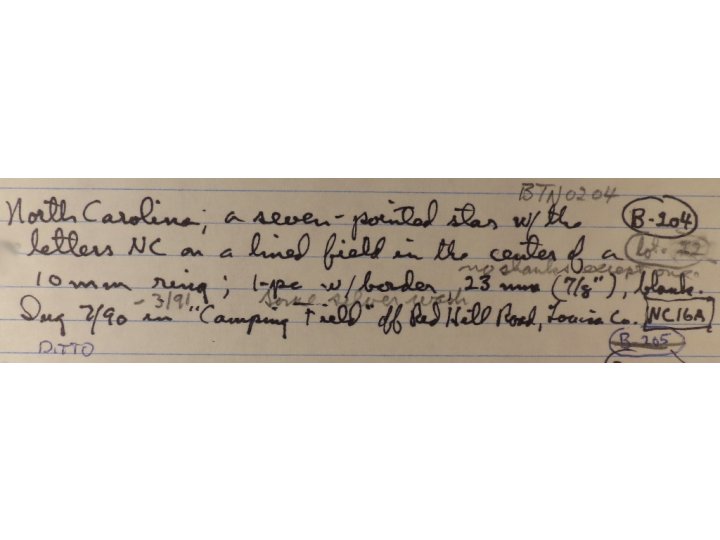 BTN0204
North Carolina; a seven-pointed star w/ the B-204
letters NC on a lined field in the center of a Lot-
no shanks except one.
10 mm ring; 1-pc w/ border, 23 mm (7/8"), blank.
- 3/91 some silver wash
Dug 7/90 in "Camping Field" off Red Hill Road, Louisa Co. NC16A
B-205
DITTO